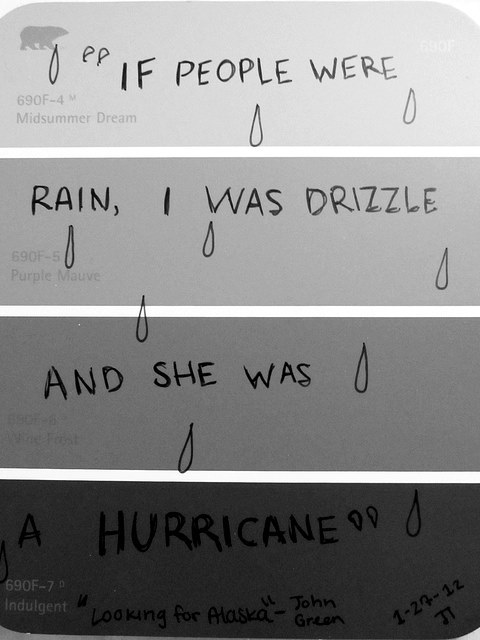 690F
"IF PEOPLE WERE
690F-4 M
Midsummer Dream
RAIN, I WAS DRIZZLE
690F-5
Purple Mauve
AND SHE WAS
690F-6
Wine Frost
A HURRICANE"
690F-7 D
Indulgent
"Looking for Alaska" - John
Green
1-27-12
JJ